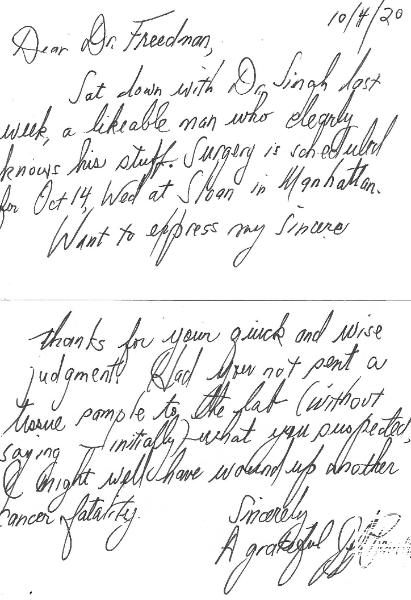 10/4/20
Dear Dr. Freedman,
Sat down with Dr. Singh last
week, a likeable man who clearly
knows his stuff. Surgery is scheduled
for Oct 14, Wed at Sloan in Manhattan.
Want to express my sincere
thanks for your quick and wise
judgment. Had you not sent a
tissue sample to the lab (without
saying – initially) – what you suspected,
I might well have wound up another
cancer fatality.
Sincerely
A grateful